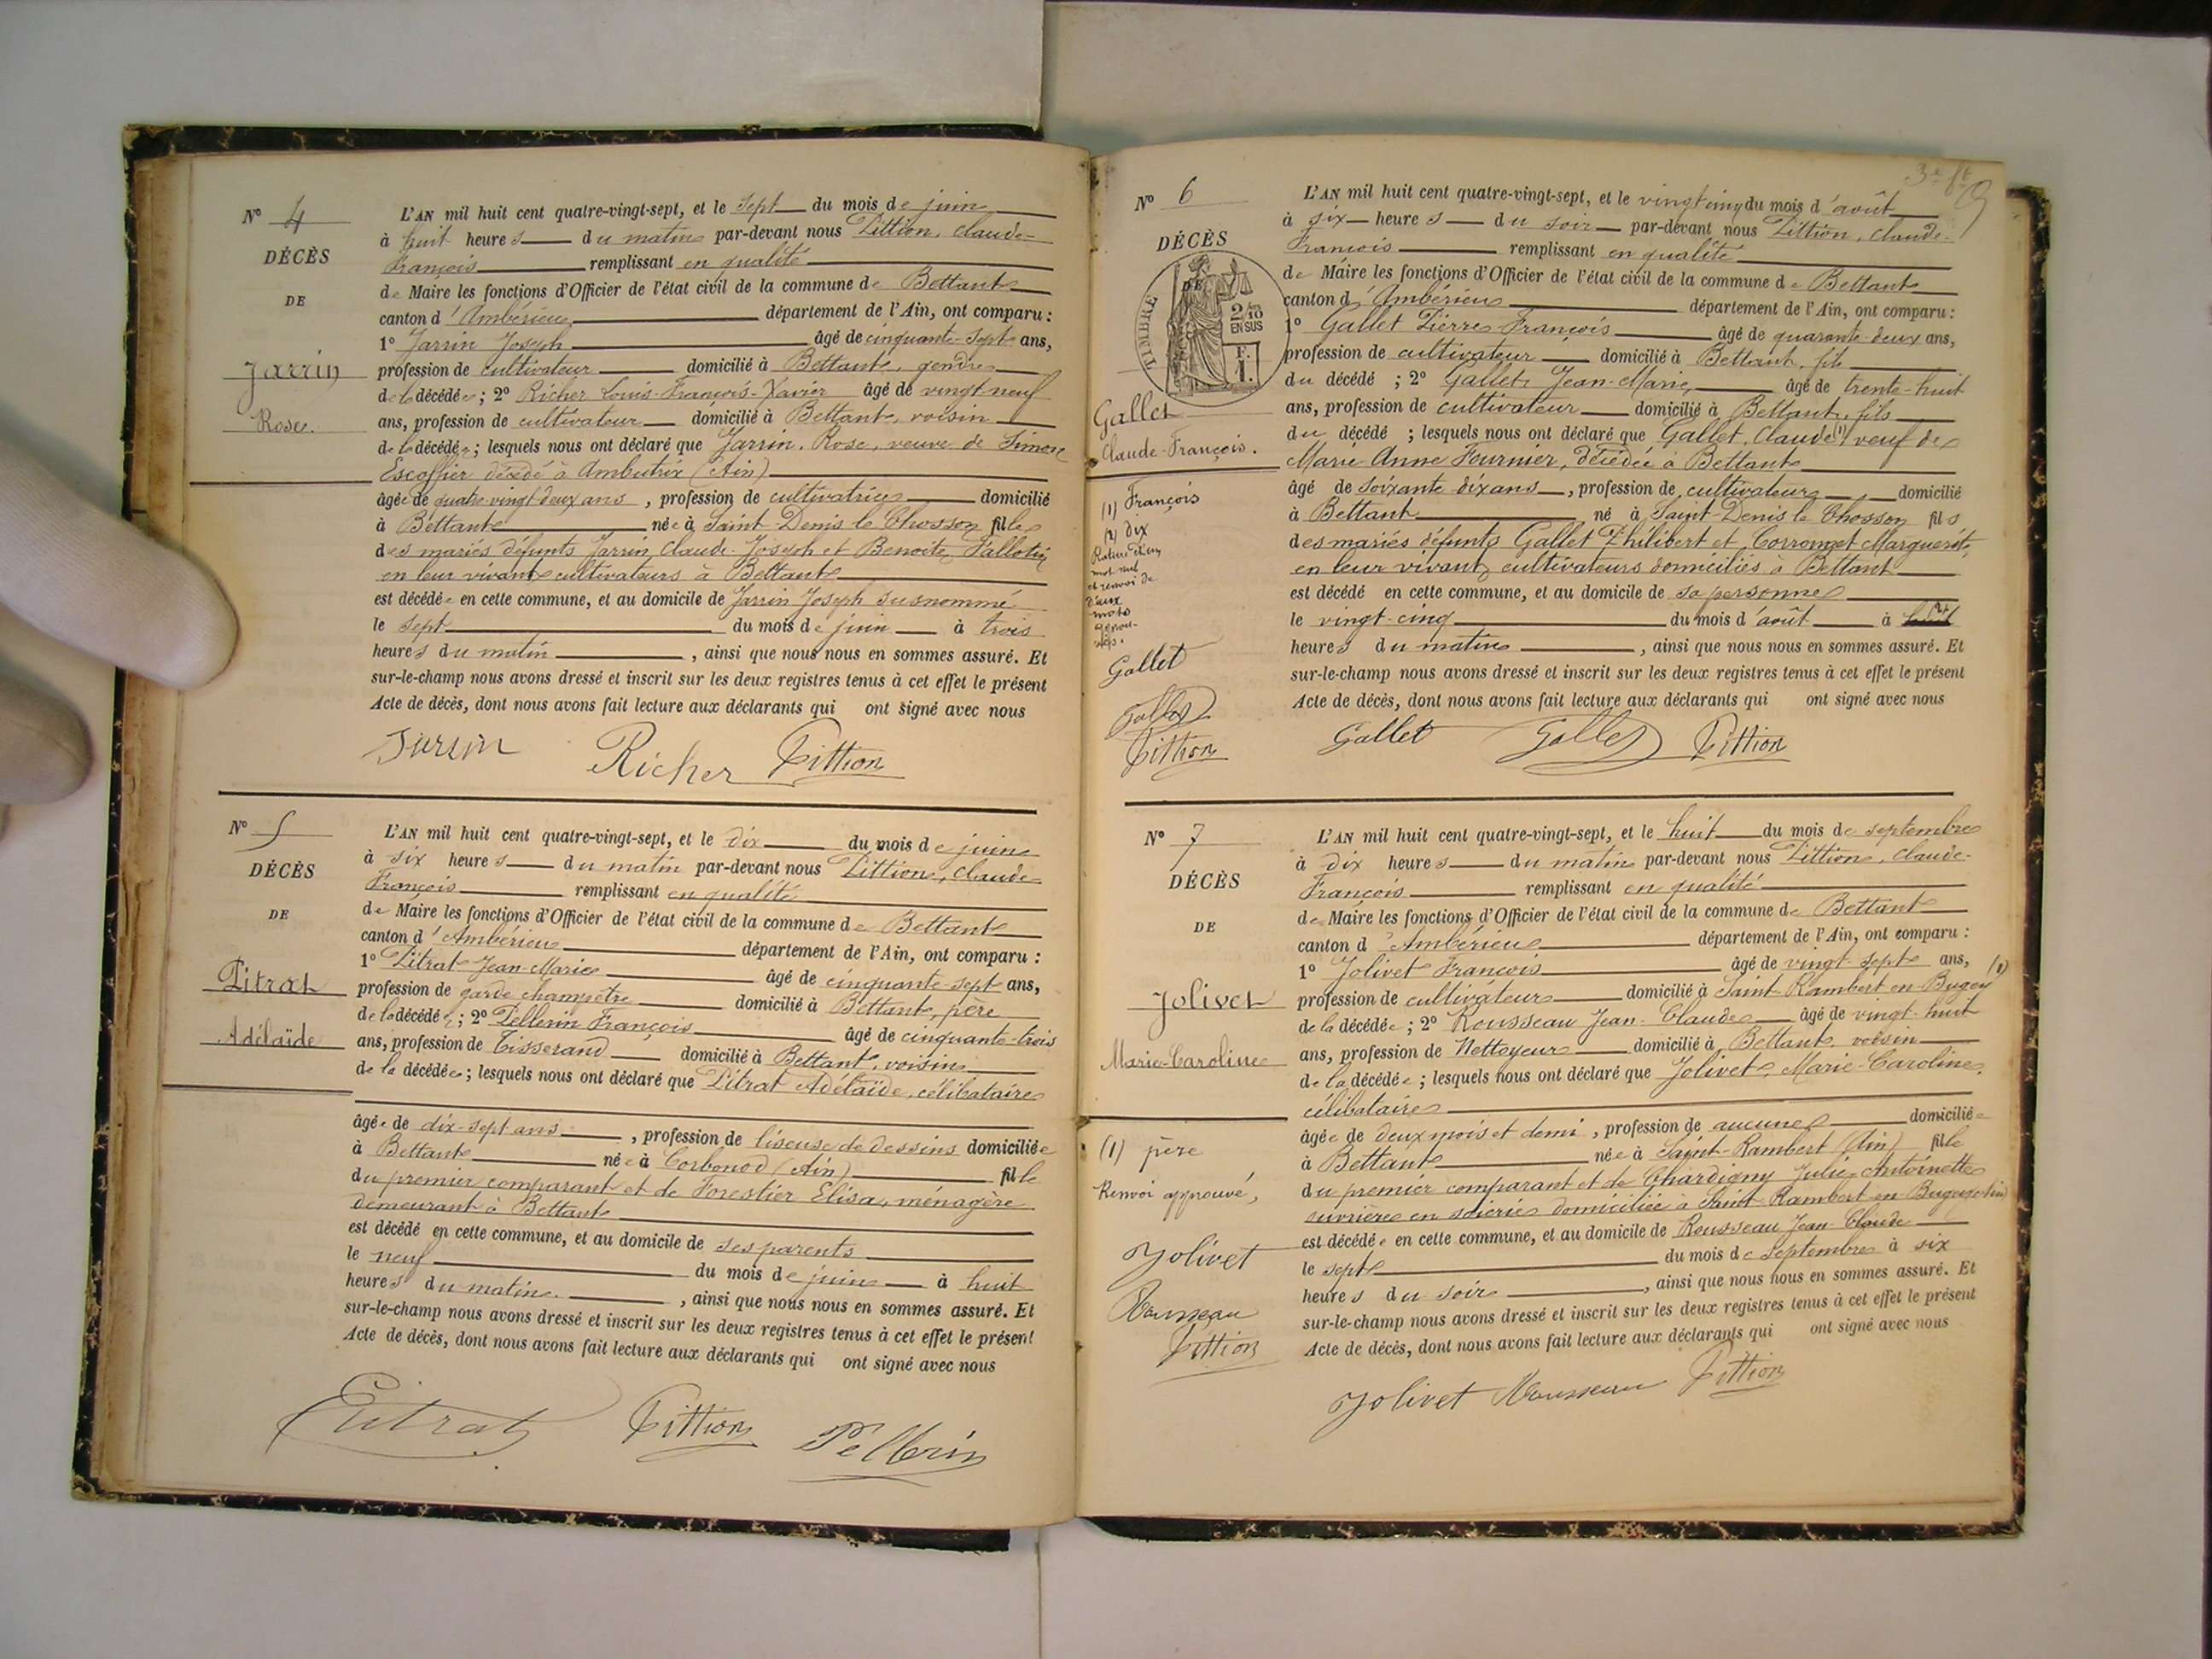 N° 4
DÉCÈS
DE
Jarrin
Rose.
L'AN mil huit cent quatre-vingt-sept, et le sept du mois de juin
à huit heures du matin par-devant nous Pittion, Claude-
François remplissant en qualité
de Maire les fonctions d'Officier de l'état civil de la commune de Bettant
canton d'Ambérieu département de l'Ain, ont comparu :
1° Jarrin Joseph âgé de cinquante-sept ans,
profession de cultivateur domicilié à Bettant, gendre
de la décédée ; 2° Richer Louis-François-Xavier âgé de vingt-neuf
ans, profession de cultivateur domicilié à Bettant, voisin
de la décédée ; lesquels nous ont déclaré que Jarrin, Rose, veuve de Simon
Escoffier décédé à Ambutrix (Ain)
âgée de quatre-vingt deux ans, profession de cultivatrice domicilié
à Bettant née à Saint-Denis le Chosson fille
des mariés défunts Jarrin, Claude-Joseph et Benoite
en leur vivant cultivateurs à Bettant
est décédée en cette commune, et au domicile de Jarrin Joseph susnommé
le sept du mois de juin à trois
heures du matin, ainsi que nous nous en sommes assuré. Et
sur-le-champ nous avons dressé et inscrit sur les deux registres tenus à cet effet le présent
Acte de décès, dont nous avons fait lecture aux déclarants qui ont signé avec nous
Jarrin Richer Pittion
N° 5
DÉCÈS
DE
Pitrat
Adélaïde
L'AN mil huit cent quatre-vingt-sept, et le dix du mois de juin
à six heures du matin par-devant nous Pittion, Claude-
François remplissant en qualité
de Maire les fonctions d'Officier de l'état civil de la commune de Bettant
canton d'Ambérieu département de l'Ain, ont comparu :
1° Pitrat Jean-Marie âgé de cinquante-sept ans,
profession de garde champêtre domicilié à Bettant, père
de la décédée ; 2° Pellerin François âgé de cinquante-trois
ans, profession de Tisserand domicilié à Bettant, voisin
de la décédée ; lesquels nous ont déclaré que Pitrat Adélaïde, célibataire
âgée de dix-sept ans, profession de liseuse de dessins domiciliée
à Bettant née à Corbonod (Ain) fille
du premier comparant et de Forestier Elisa, ménagère
demeurant à Bettant
est décédé en cette commune, et au domicile de ses parents
le neuf du mois de juin à huit
heures du matin, ainsi que nous nous en sommes assuré. Et
sur-le-champ nous avons dressé et inscrit sur les deux registres tenus à cet effet le présent
Acte de décès, dont nous avons fait lecture aux déclarants qui ont signé avec nous
Pitrat Pittion Pellerin
N° 6
DÉCÈS
DE
TIMBRE
2/10
EN SUS
F.
1.
Gallet
Claude-François.
(1) François
(2) dix
Rature d'un
mot nul
et renvoi de
deux
mots
approu-
vés.
Gallet
Gallet
Pittion
L'AN mil huit cent quatre-vingt-sept, et le vingt cinq du mois d'août
à six heures du soir par-devant nous Pittion, Claude-
François remplissant en qualité
de Maire les fonctions d'Officier de l'état civil de la commune de Bettant
canton d'Ambérieu département de l'Ain, ont comparu :
1° Gallet Pierre François âgé de quarante-deux ans,
profession de cultivateur domicilié à Bettant, fils
du décédé ; 2° Gallet Jean-Marie, âgé de trente-huit
ans, profession de cultivateur domicilié à Bettant, fils
du décédé ; lesquels nous ont déclaré que Gallet, Claude (1) veuf de
Marie Anne Fournier, décédée à Bettant
âgé de soixante dix ans, profession de cultivateur domicilié
à Bettant né à Saint-Denis le Chosson fils
des mariés défunts Gallet Philibert et Marguerite,
en leur vivant, cultivateurs domiciliés à Bettant
est décédé en cette commune, et au domicile de sa personne
le vingt-cinq du mois d'août à (2)
heures du matin, ainsi que nous nous en sommes assuré. Et
sur-le-champ nous avons dressé et inscrit sur les deux registres tenus à cet effet le présent
Acte de décès, dont nous avons fait lecture aux déclarants qui ont signé avec nous
Gallet Gallet Pittion
N° 7
DÉCÈS
DE
Jolivet
Marie-Caroline
(1) père
Renvoi approuvé,
Jolivet
Rousseau
Pittion
L'AN mil huit cent quatre-vingt-sept, et le huit du mois de septembre
à dix heures du matin par-devant nous Pittion, Claude-
François remplissant en qualité
de Maire les fonctions d'Officier de l'état civil de la commune de Bettant
canton d'Ambérieu département de l'Ain, ont comparu :
1° Jolivet François âgé de vingt-sept ans,
profession de cultivateur domicilié à Saint-Rambert en Bugey (1)
de la décédée ; 2° Rousseau Jean-Claude âgé de vingt-huit
ans, profession de Nettoyeur domicilié à Bettant, voisin
de la décédée ; lesquels nous ont déclaré que Jolivet, Marie-Caroline,
célibataire
âgée de deux mois et demi, profession de aucune domiciliée
à Bettant née à Saint-Rambert (Ain) fille
du premier comparant et de Chardigny Julie-Antoinette
ouvrière en soierie domiciliée à Saint-Rambert en Bugey (Ain)
est décédée en cette commune, et au domicile de Rousseau Jean-Claude
le sept du mois de septembre à six
heures du soir, ainsi que nous nous en sommes assuré. Et
sur-le-champ nous avons dressé et inscrit sur les deux registres tenus à cet effet le présent
Acte de décès, dont nous avons fait lecture aux déclarants qui ont signé avec nous
Jolivet Rousseau Pittion